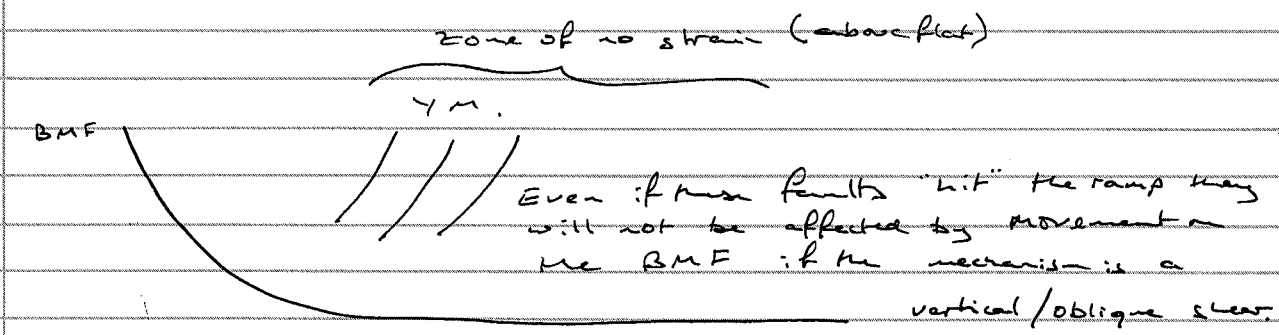 zone of no strain (above flat)
Y M.
BMF
Even if these faults "hit" the ramp they
will not be affected by movement on
the BMF if the mechanism is a
vertical/oblique shear.